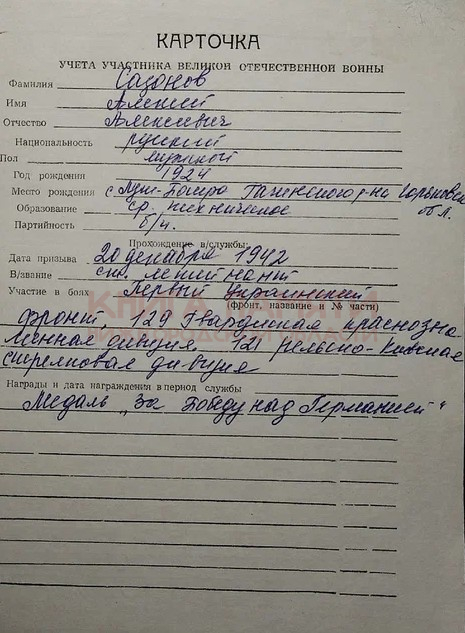 КАРТОЧКА
УЧЕТА УЧАСТНИКА ВЕЛИКОЙ ОТЕЧЕСТВЕННОЙ ВОЙНЫ
Фамилия Сазонов
Имя Алексей
Отчество Алексеевич
Национальность русский
Пол мужской
Год рождения 1924
Место рождения с. Гагинского р-на Горьковск.
обл.
Образование ср. техническое
Партийность б/п.
Прохождение в/службы:
Дата призыва 20 декабря 1942
В/звание лейтенант
Участие в боях Первый Украинский
(фронт, название и № части)
КНИГА ПАМЯТИ
фронт, 129 Гвардейская краснозна-
менная дивизия. 121 Рыльско-Киевская
стрелковая дивизия
Награды и дата награждения в период службы
Медаль „За Победу над Германией"